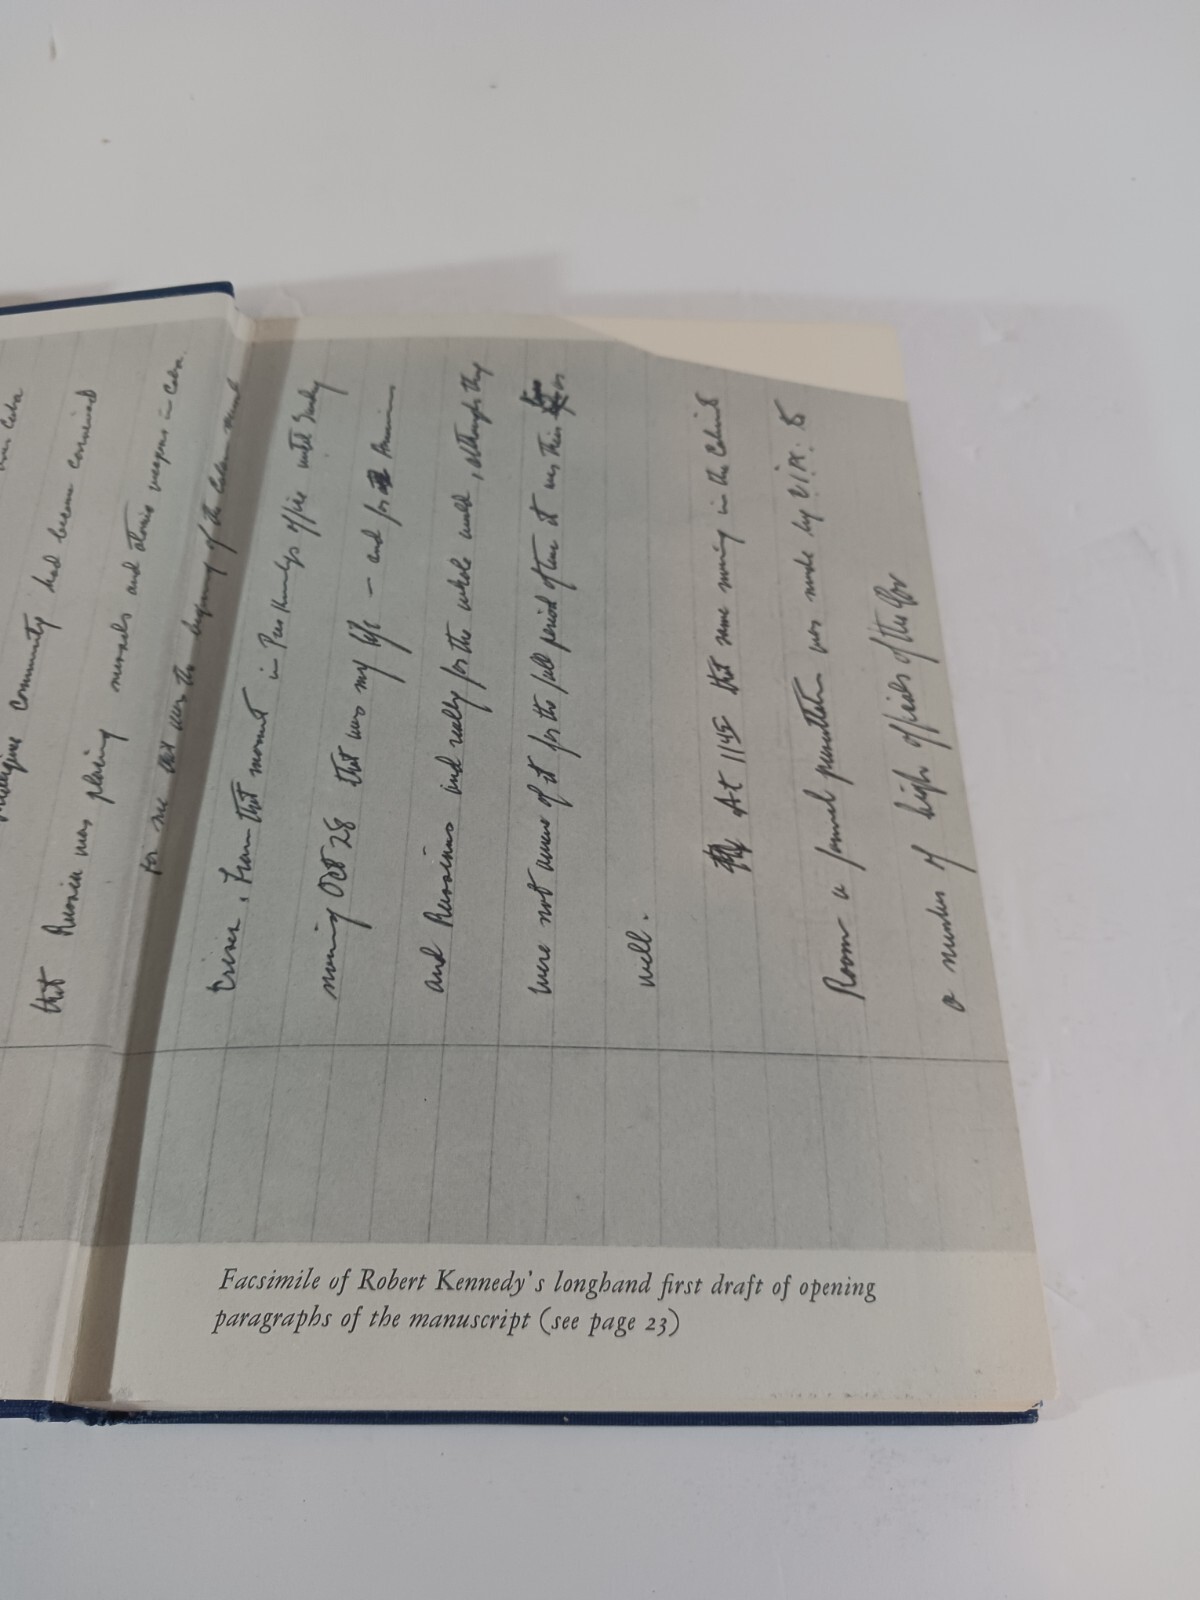 in Cuba
community had become convinced
that Russia was placing missiles and atomic weapons in Cuba.
for me this was the beginning of the Cuban
crises. From that moment in Pres Kennedys office until Sunday
morning Oct 28 that was my life – and for Americans
and Russians and really for the whole world, although they
were not aware of it for the full period of time it was their as
well.
At 1145 that same morning in the Cabinet
Room a formal presentation was made by CIA. to
a number of high officials of the Gov
Facsimile of Robert Kennedy's longhand first draft of opening
paragraphs of the manuscript (see page 23)